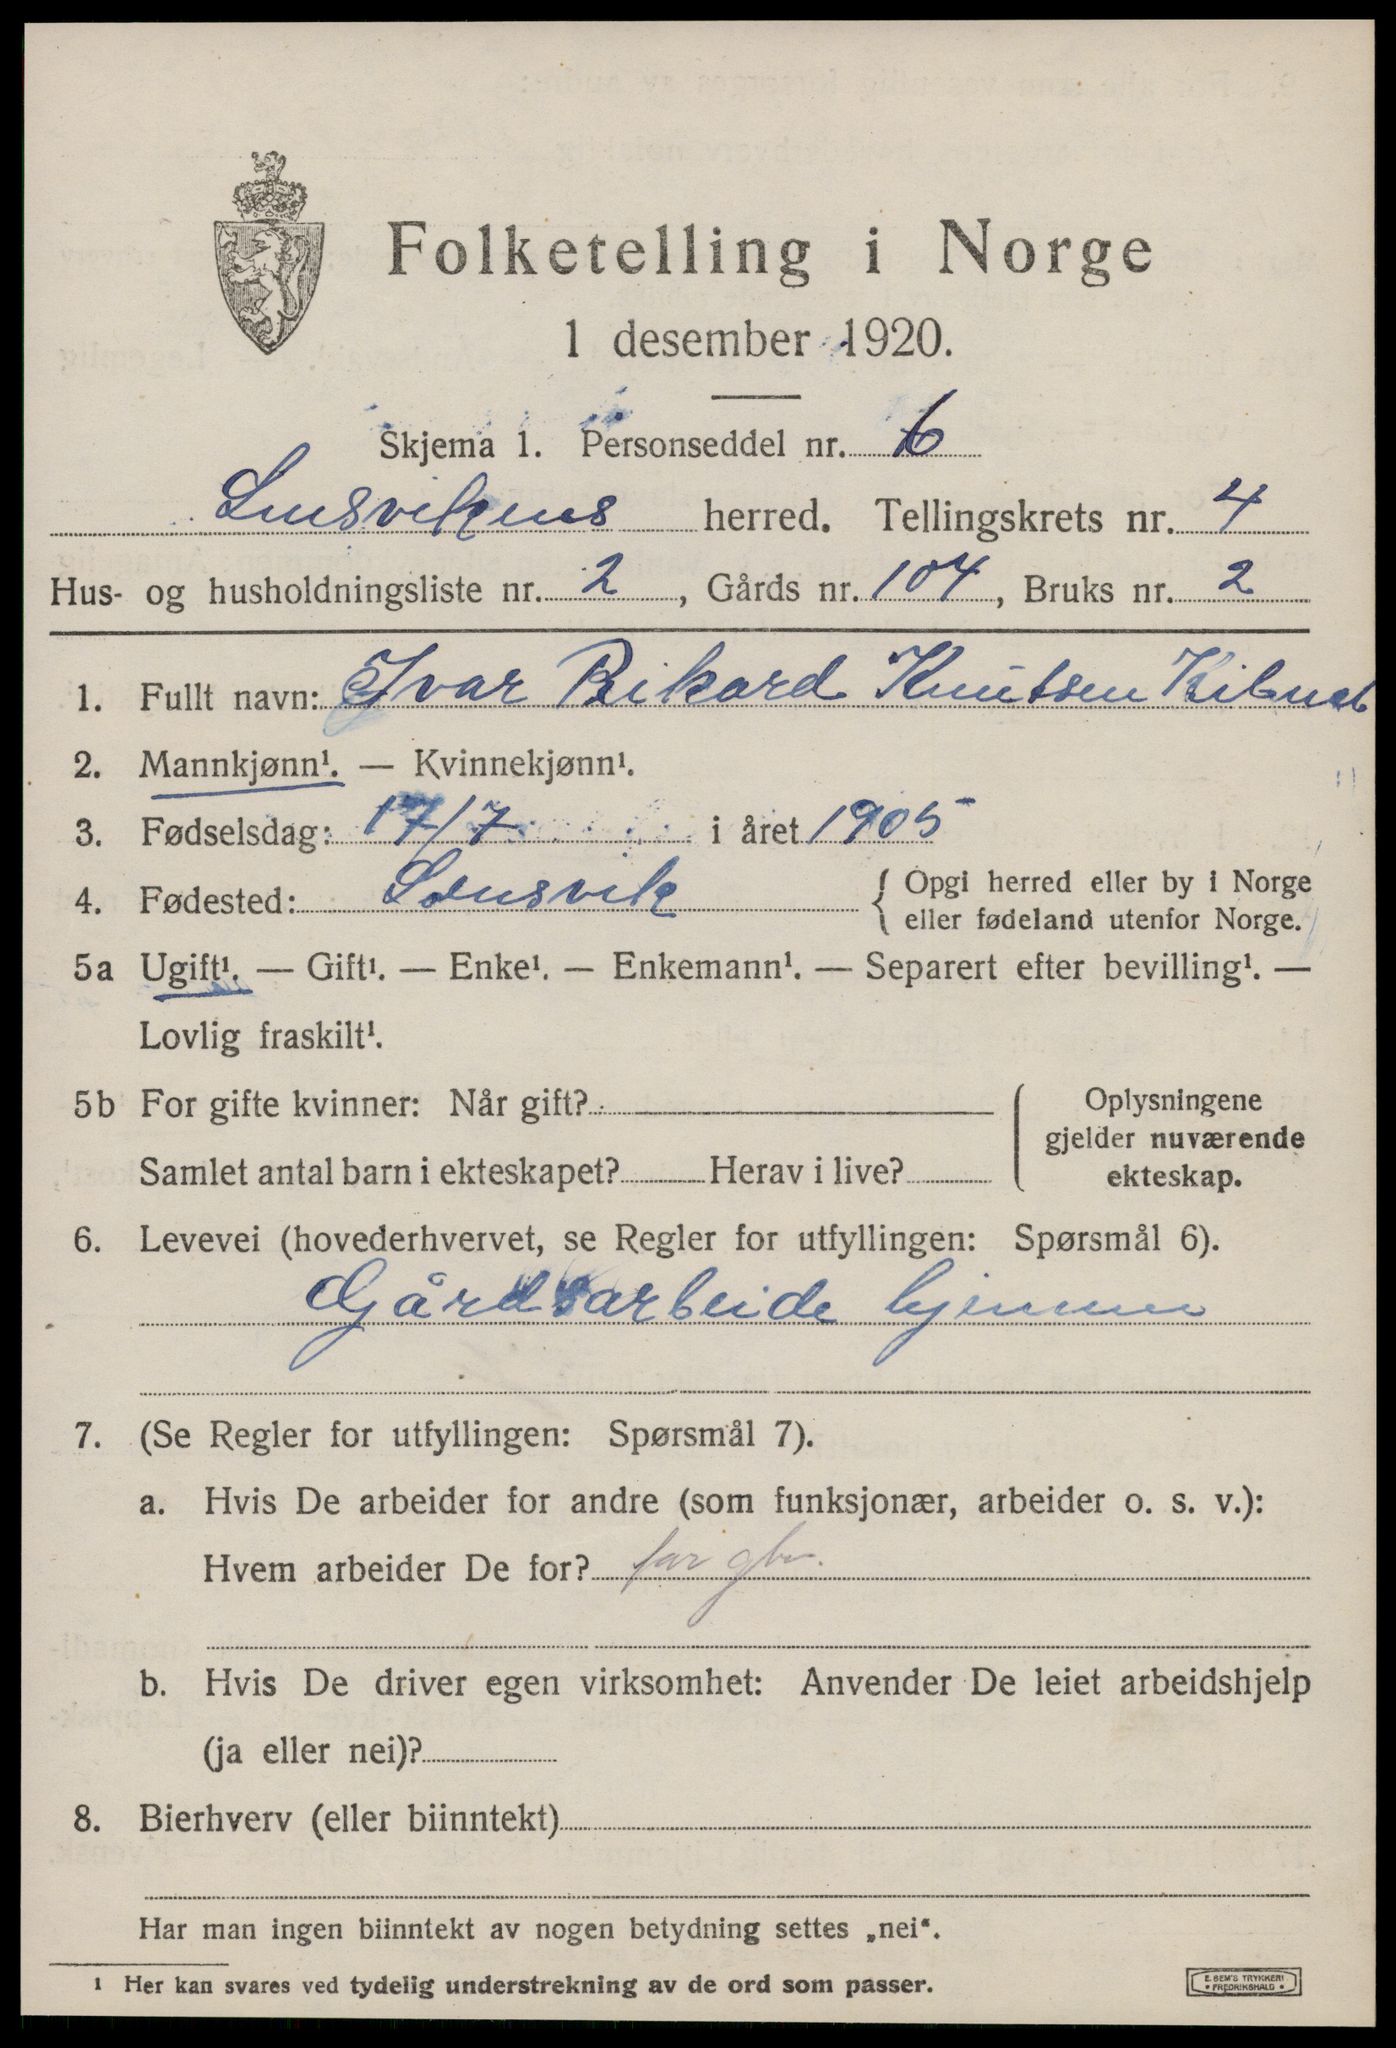 Folketelling i Norge
1 desember 1920.
Skjema 1. Personseddel nr. 6
Lensvikens herred. Tellingskrets nr. 4
Hus- og husholdningsliste nr. 2, Gårds nr. 104, Bruks nr. 2
1. Fullt navn: Ivar Rikard Knutsen
2. Mannkjønn¹. — Kvinnekjønn¹.
3. Fødselsdag: 17/7 i året 1905
4. Fødested: Lensvik { Opgi herred eller by i Norge
eller fødeland utenfor Norge.
5a Ugift¹. — Gift¹. — Enke¹. — Enkemann¹. — Separert efter bevilling¹. —
Lovlig fraskilt¹.
5b For gifte kvinner: Når gift?
Samlet antal barn i ekteskapet? Herav i live?
Oplysningene
gjelder nuværende
ekteskap.
6. Levevei (hovederhvervet, se Regler for utfyllingen: Spørsmål 6).
Gårdsarbeide hjemme
7. (Se Regler for utfyllingen: Spørsmål 7).
a. Hvis De arbeider for andre (som funksjonær, arbeider o. s. v.):
Hvem arbeider De for? far gbr.
b. Hvis De driver egen virksomhet: Anvender De leiet arbeidshjelp
(ja eller nei)?
8. Bierhverv (eller biinntekt)
Har man ingen biinntekt av nogen betydning settes „nei“.
¹ Her kan svares ved tydelig understrekning av de ord som passer.
E. SEM'S TRYKKERI
• FREDRIKSHALD •